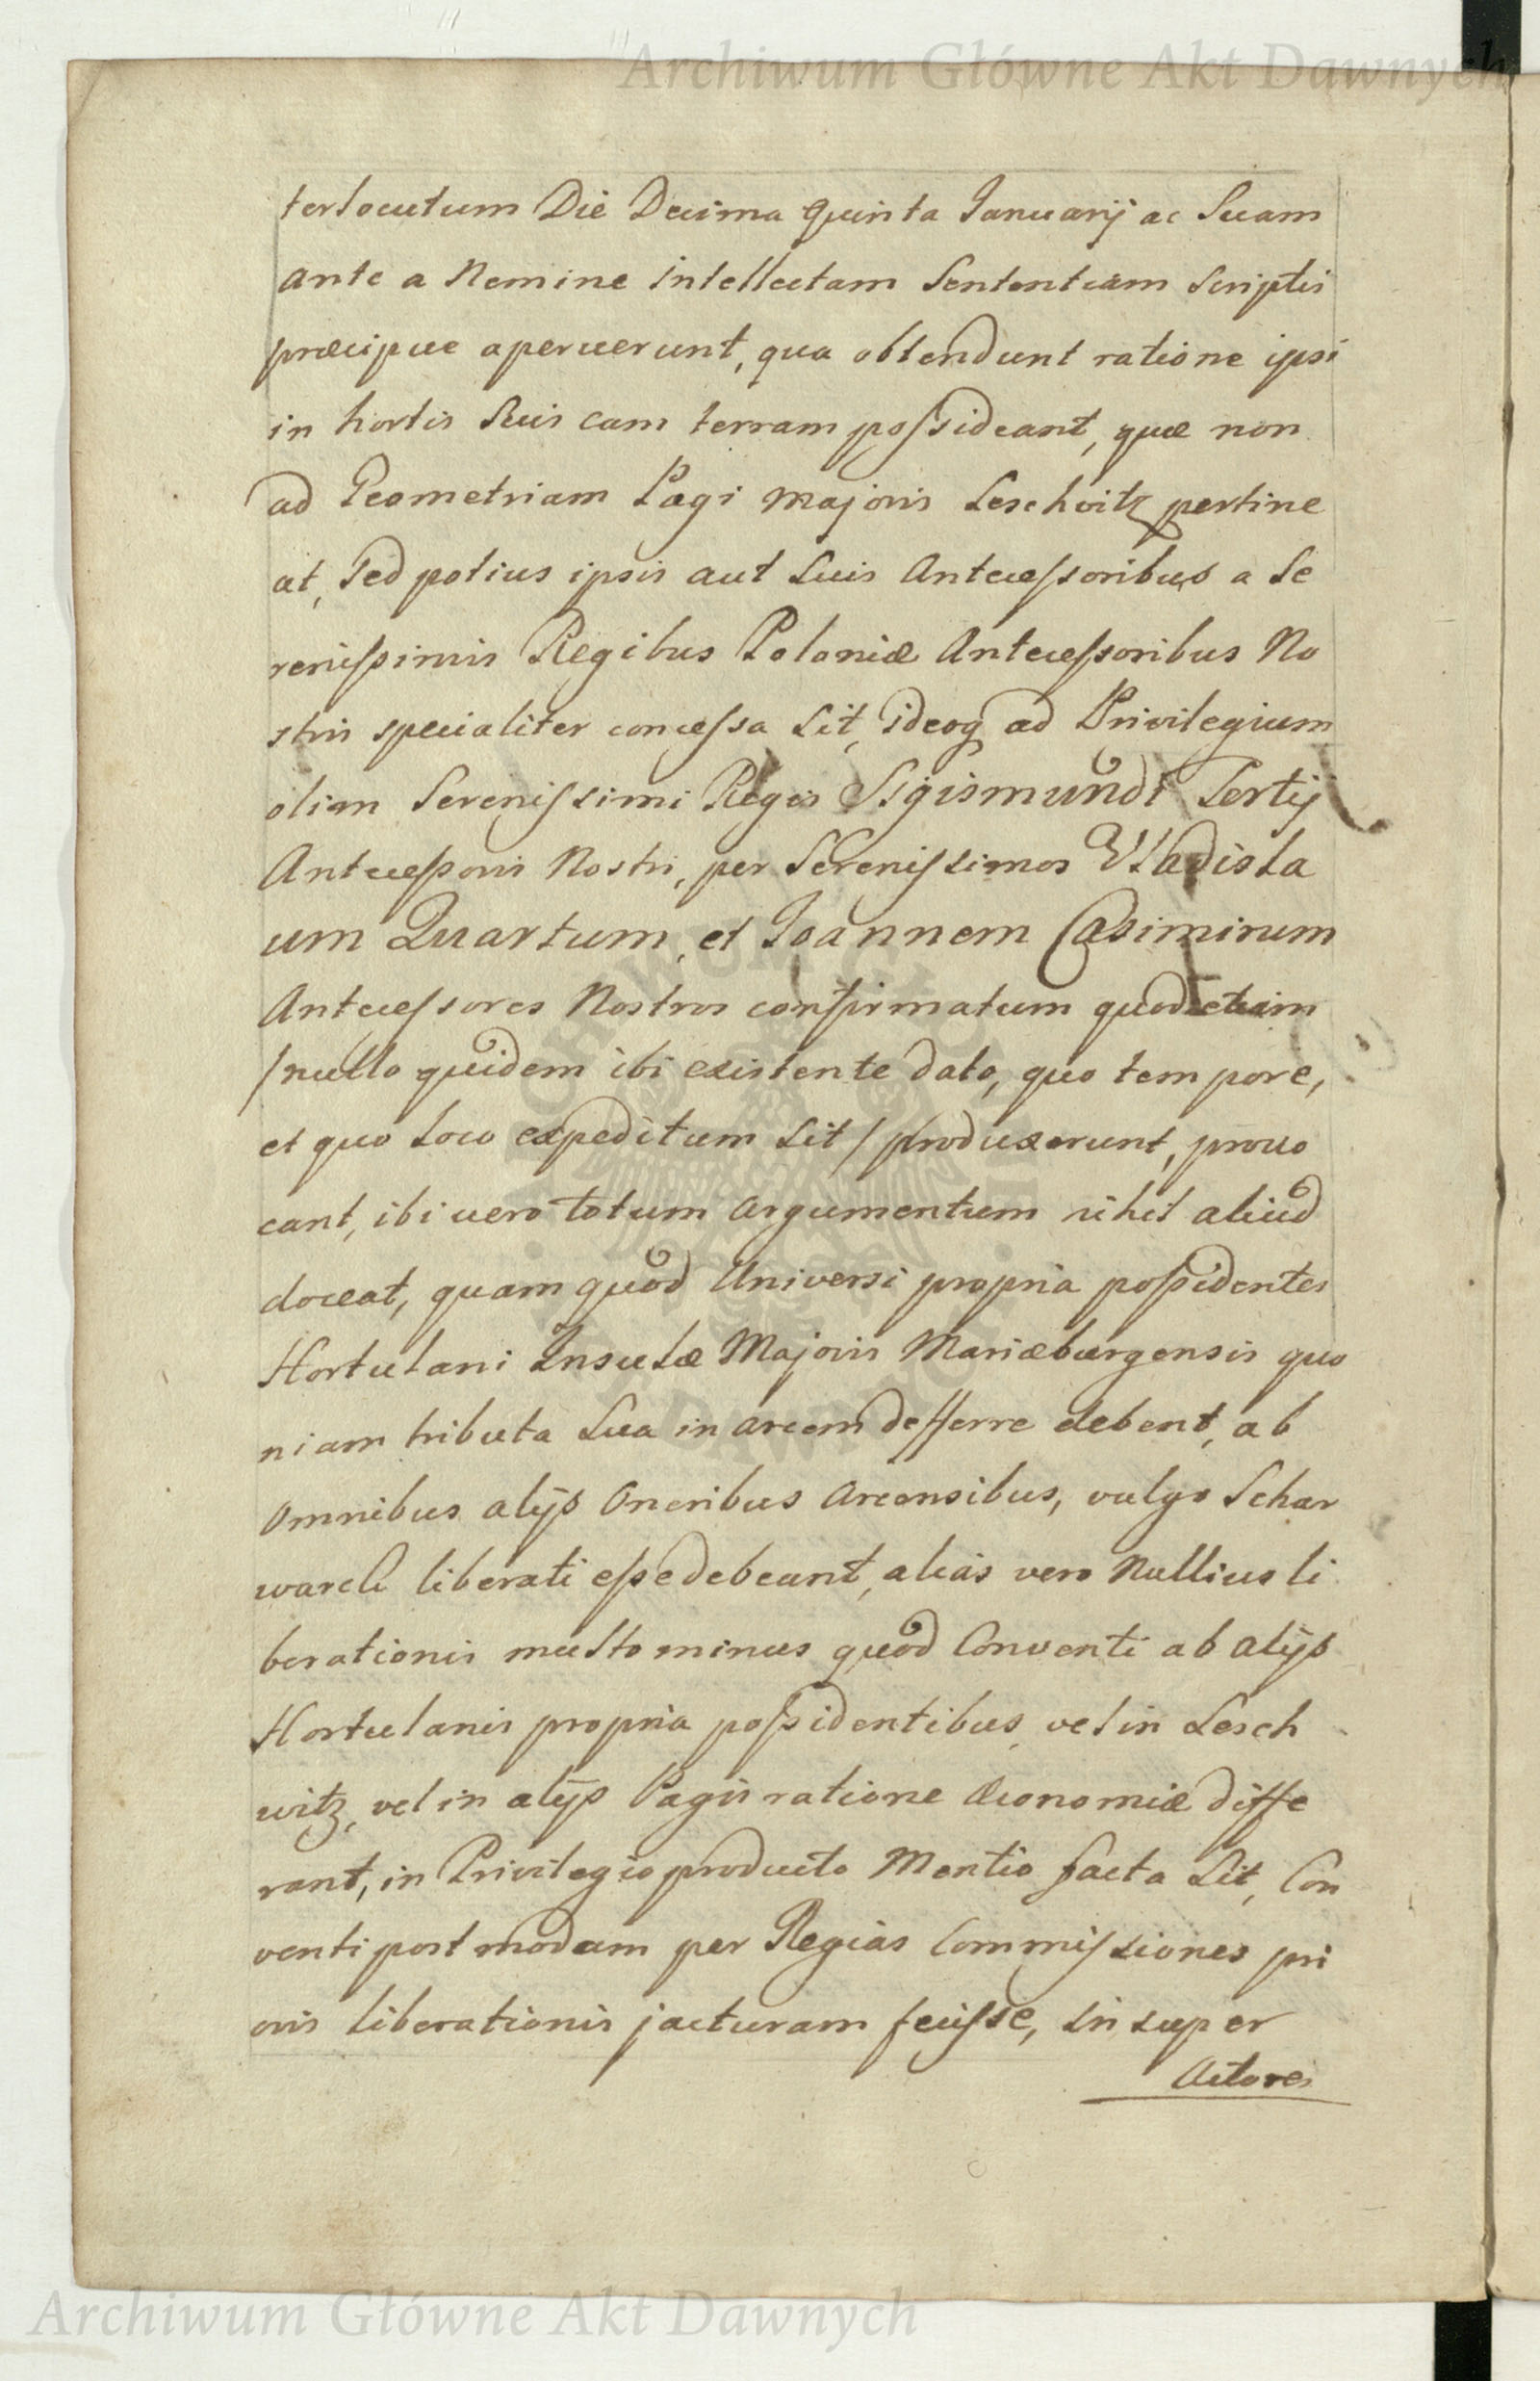 Archiwum Główne Akt Dawnych
terlocutum Die Decima quinta Januarij ac Suam
ante a Nemine intellectam Sententiam Scriptis
præcipue aperuerunt, qua obtendunt ratione ipsi
in hortis Suis eam terram poſsideant, quæ non
ad Geometriam Pagi Majoris Leschvitz pertine
at, Sed potius ipsis aut Suis Anteceſsoribus a Se
reniſsimis Regibus Poloniæ Anteceſsoribus No
stris specialiter conceſsa Sit, ideoq ad Privilegium
olim Sereniſsimi Regis Sigismundi Tertij
Anteceſsoris Nostri, per Sereniſsimos Vladisla
um Quartum, et Joannem Casimirum
Anteceſsores Nostros confirmatum quod etiam
/nullo quidem ibi existente dato, quo tempore,
et quo Loco expeditum Sit/ produxerunt, provo
cant, ibi vero totum argumentum nihil aliud
doceat, quam quod Universi propria poſsidentes
Hortulani Insulæ Majoris Mariæburgensis quo
niam tributa Sua in arcem defferre debent, ab
omnibus alijs Oneribus Arcensibus, vulgo Schar
warck liberati eſse debeant, alias vero Nullius li
berationis multo minus quod Conventi ab alijs
Hortulanis propria poſsidentibus vel in Lesch
witz, vel in alijs Pagis ratione Œconomiæ diffe
rant, in Privilegio producto Mentio facta Sit, Con
venti post modum per Regias Commiſsiones pri
oris liberationis jacturam feciſse, in super
Actores
Archiwum Główne Akt Dawnych